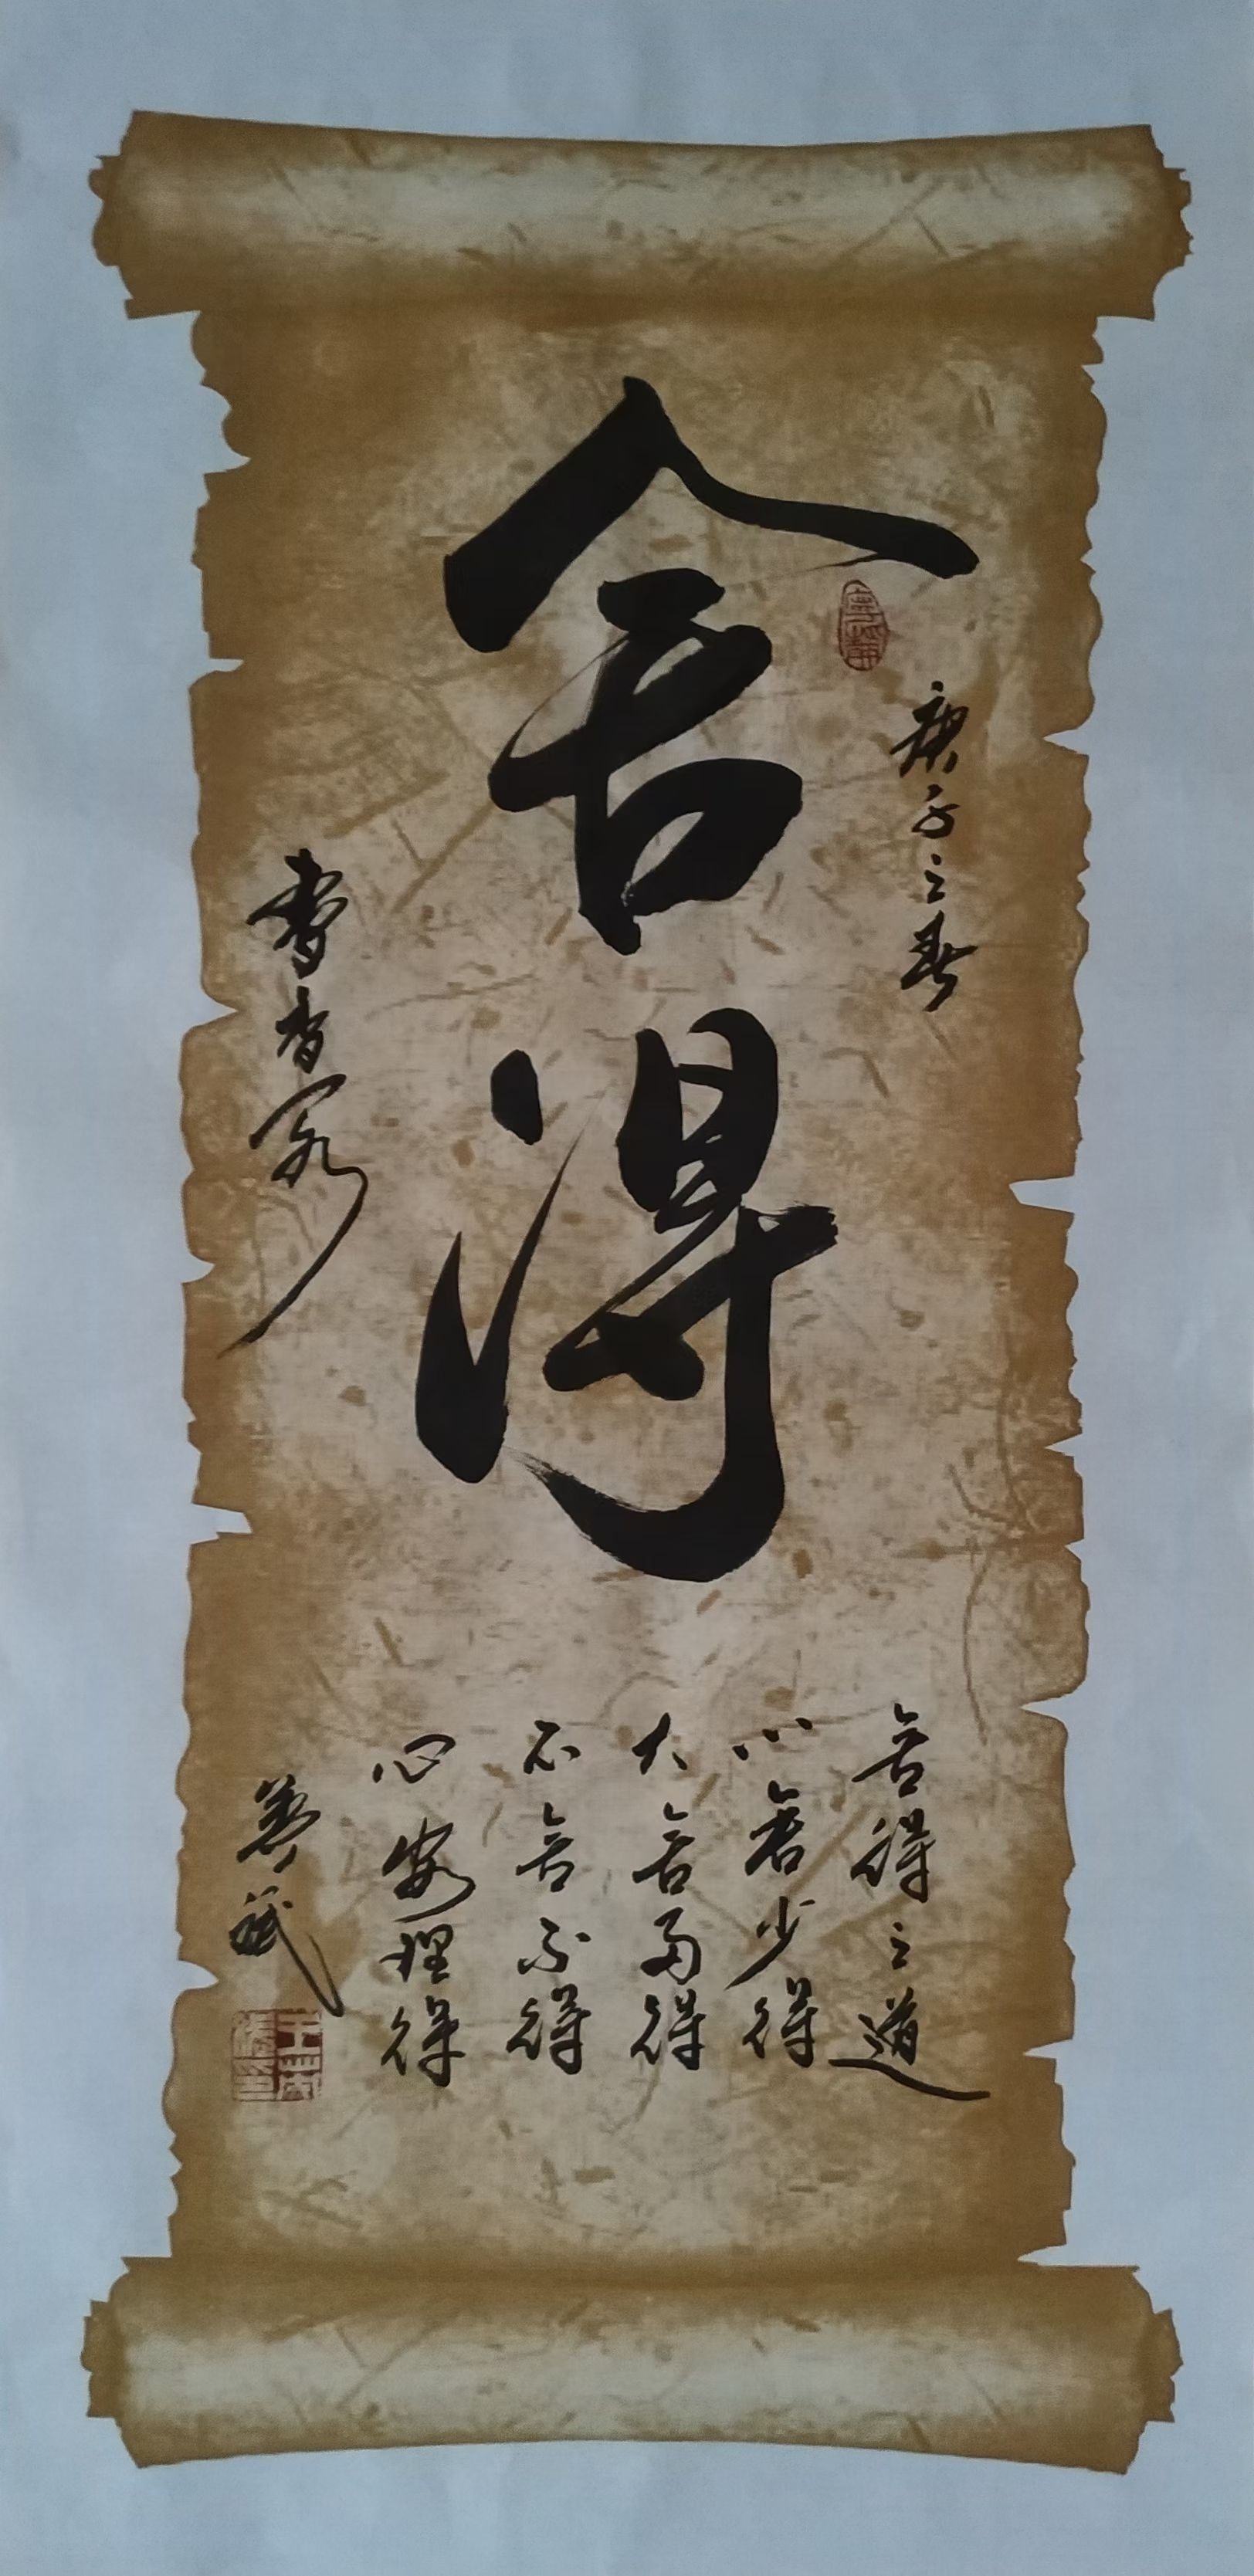 寧靜
庚子之春
舍得
書香
舍得之道
小舍少得
大舍多得
不舍不得
心安理得